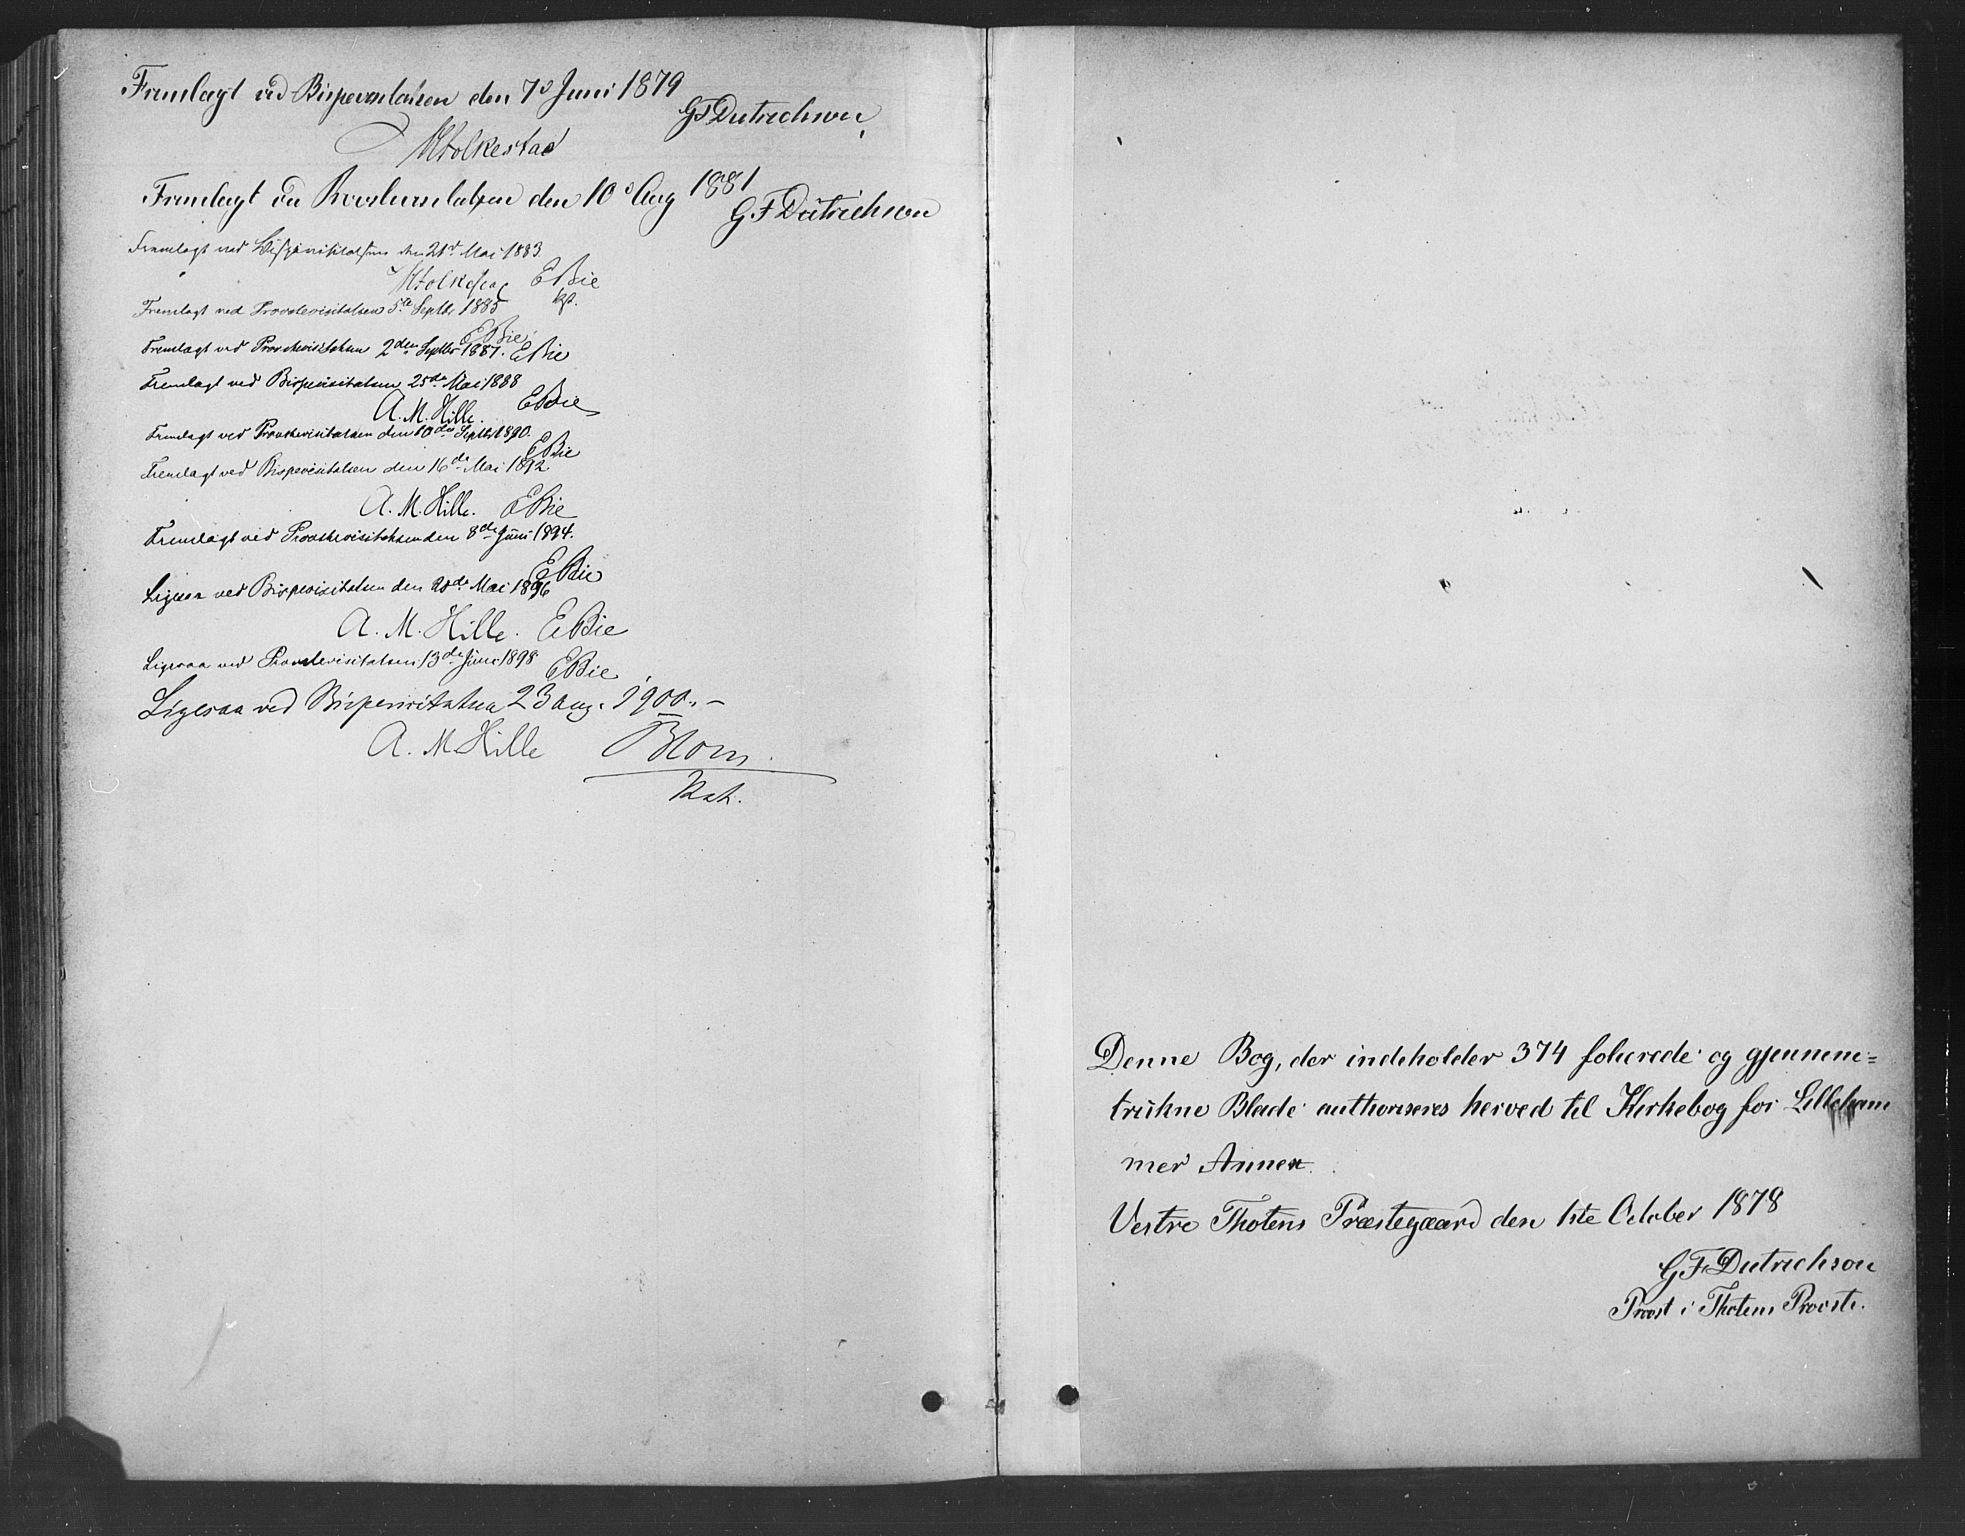 Fremlagt ved Bispevisitatsen den 7de Juni 1879
GFDietrichson
Folkestad
Fremlagt ved Provstevisitatsen den 10de Aug 1881
GFDietrichson
Fremlagt ved Bispevisitatsen den 21de Mai 1883
Folkestad EBie
kap.
Fremlagt ved Provstevisitatsen 5te Septbr 1885
EBie
Fremlagt ved Provstevisitatsen 2den Septbr 1887. EBie
Fremlagt ved Bispevisitatsen 25de Mai 1888
A. M. Hille. EBie
Fremlagt ved Provstevisitatsen den 10de Septbr 1890.
EBie
Fremlagt ved Bispevisitatsen den 16de Mai 1892
A. M. Hille. EBie
Fremlagt ved Provstevisitatsen den 8de Juni 1894.
EBie
Ligesaa ved Bispevisitatsen den 20de Mai 1896
A. M. Hille. EBie
Ligesaa ved Provstevisitatsen 13de Juni 1898
EBie
Ligesaa ved Bispevisitatsen 23 aug. 1900.-
A. M. Hille Blom.
Denne Bog, der indeholder 374 folierede og gjennem=
trukne Blade authoriseres herved til Kirkebog for Lilleham
mer Annex.
Vestre Thotens Præstegaard den 1ste October 1878
GFDietrichson
Provst i Thotens Provsti.